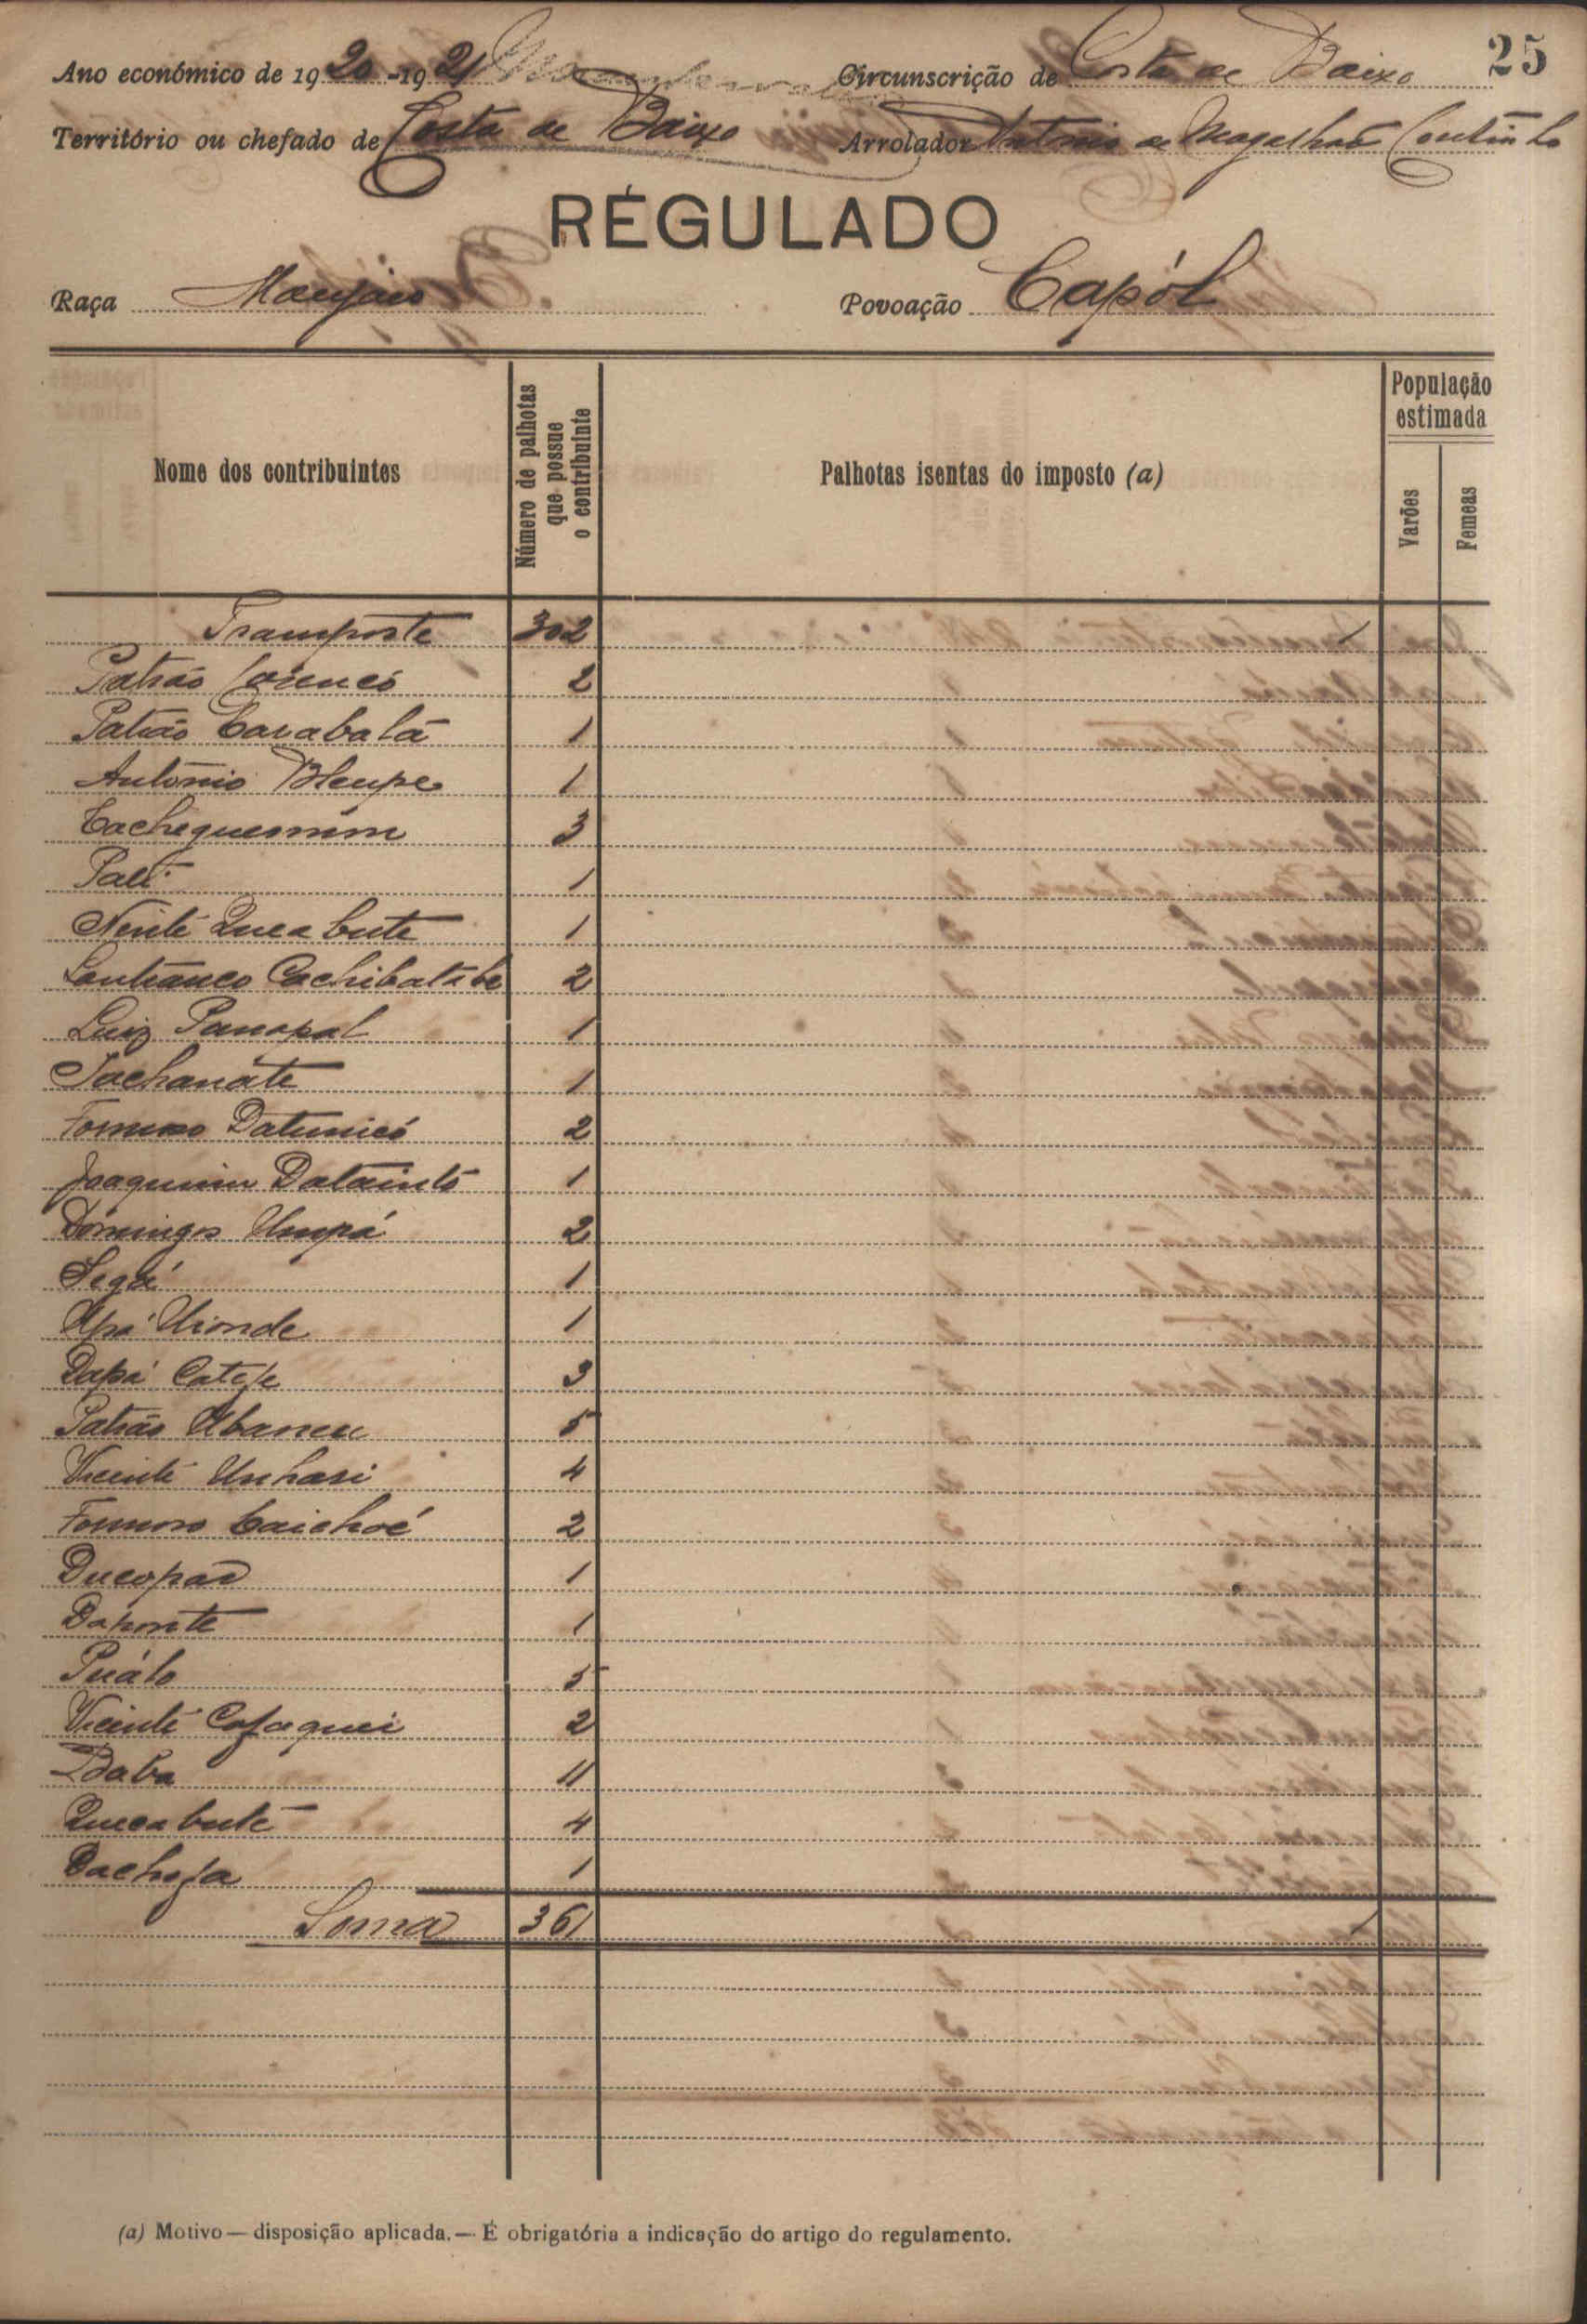 25
Ano económico de 1920-1921 Circunscrição de Costa de Baixo
Território ou chefado de Costa de Baixo Arrolador Antonio de Magalhães Coutinho
REGULADO
Raça Manjaco Povoação Capól
Nome dos contribuintes
Número de palhotas que possue o contribuinte
Palhotas isentas do imposto (a)
População estimada
Varões
Femeas
Transporte 302 1
Patrão 2
Patrão Carabalã 1
António Bleupe 1
Cachequemim 3
Pali 1
Nenté Queabute 1
Cachibatábé 2
Luiz Panapal 1
Jachanáte 1
Formoso Datunicó 2
Joaquim Dataintó 1
Domingos Umpá 2
Segá 1
Upá Uionde 1
Dapá Catefe 3
Patrão Ubaneu 5
Vicente Unhasi 4
Formoso Caichoé 2
Ducopad 1
Daponte 1
Puálo 5
Vicente Cafaquei 2
Daba 11
Queabuté 4
Dachofa 1
Soma 361 1
(a) Motivo — disposição aplicada. — É obrigatória a indicação do artigo do regulamento.